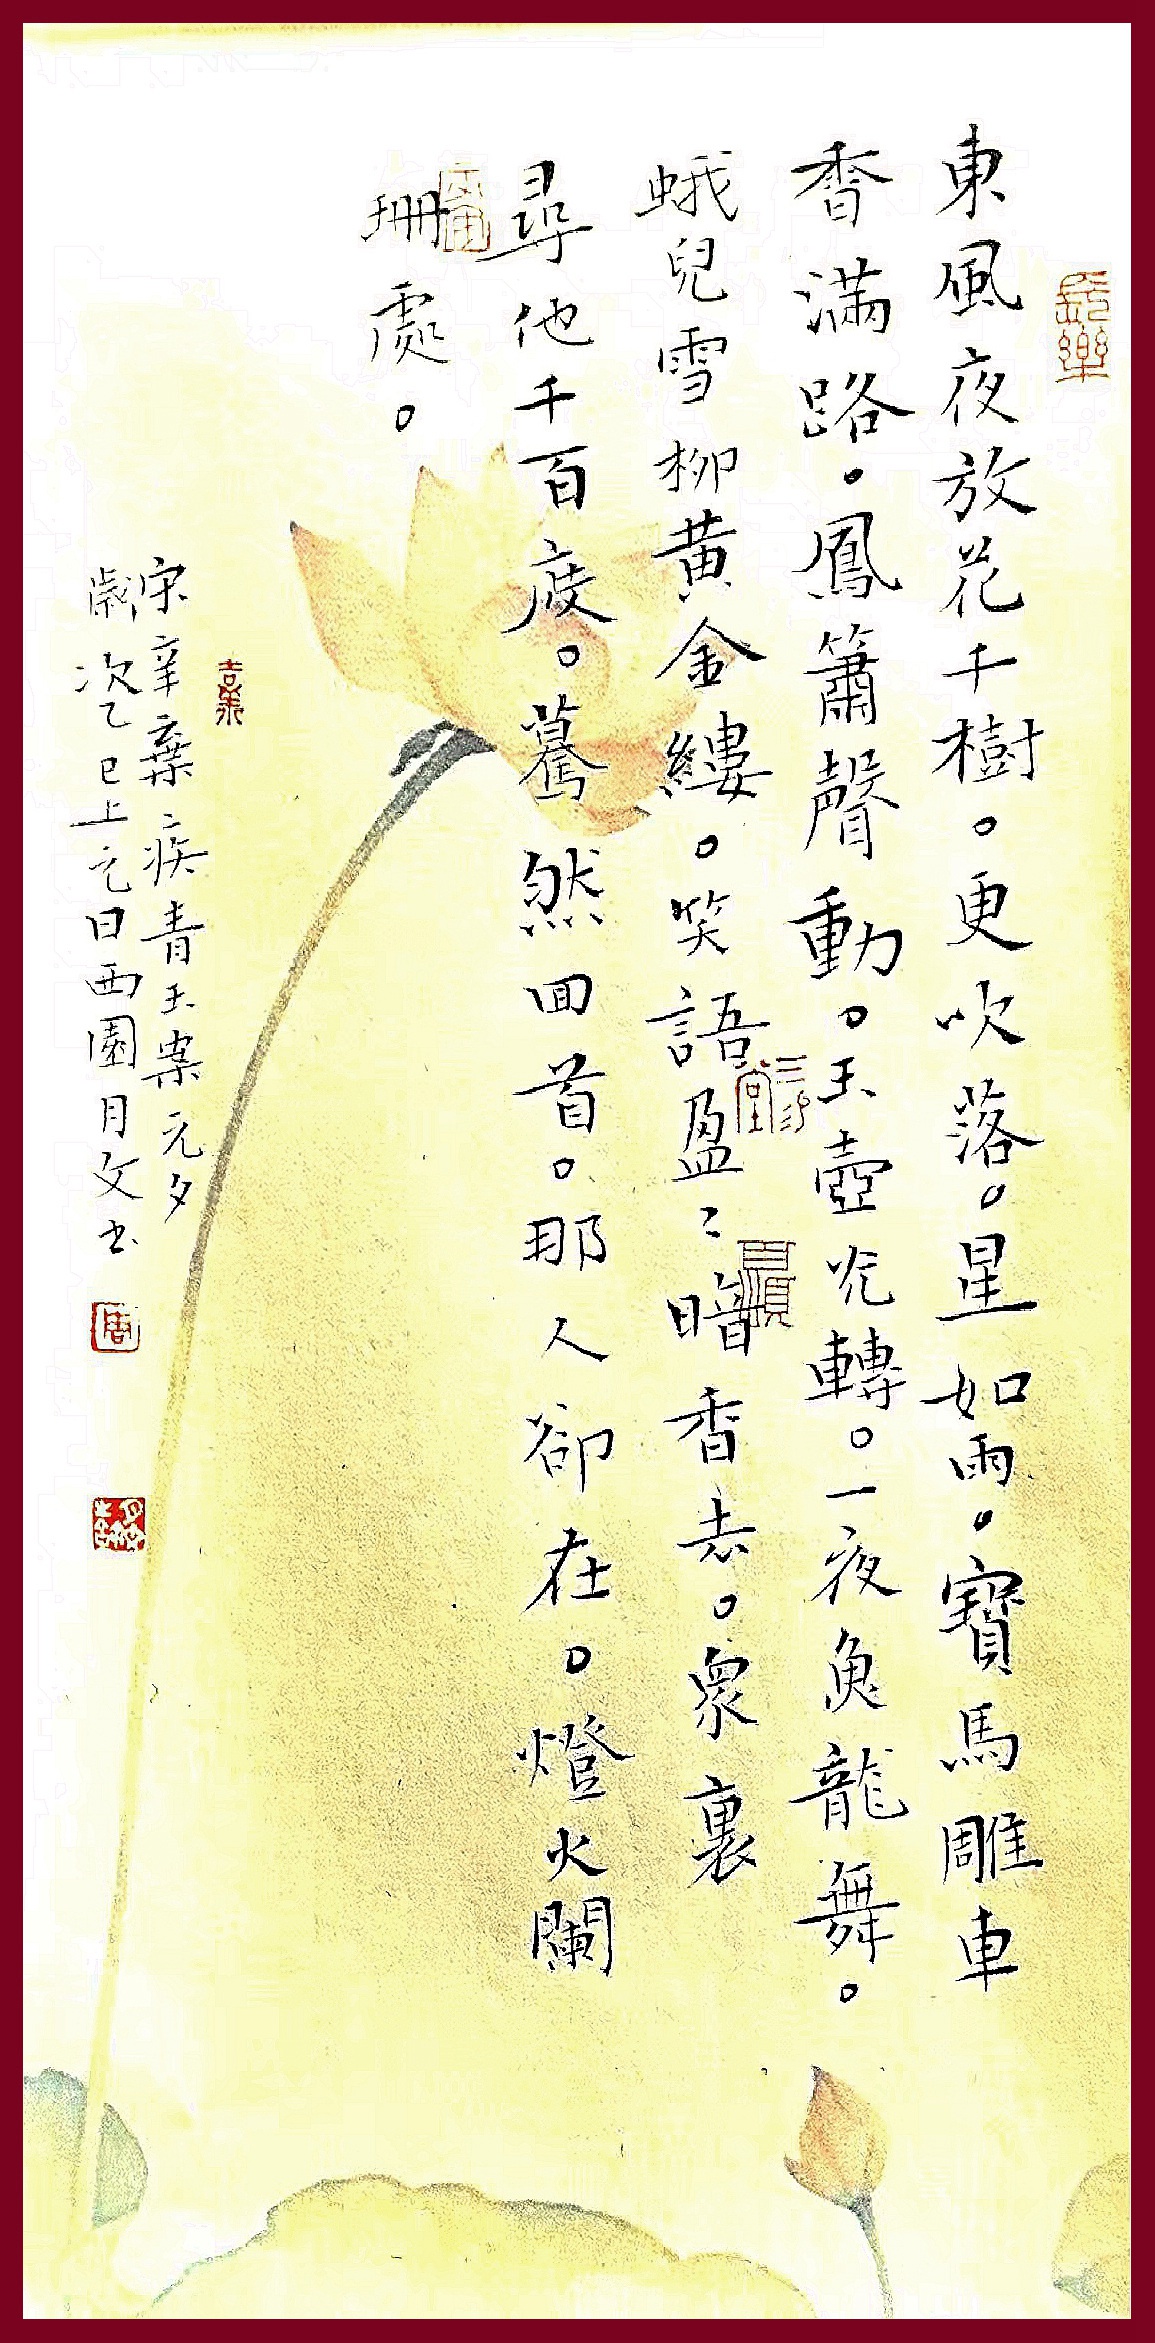 東風夜放花千樹。更吹落。星如雨。寶馬雕車
香滿路。鳳簫聲動。玉壺光轉。一夜魚龍舞。
蛾兒雪柳黃金縷。笑語盈〻暗香去。衆裏
尋他千百度。驀然回首。那人卻在。燈火闌
珊處。
宋辛棄疾青玉案元夕
歲次乙巳上元日西園月文书